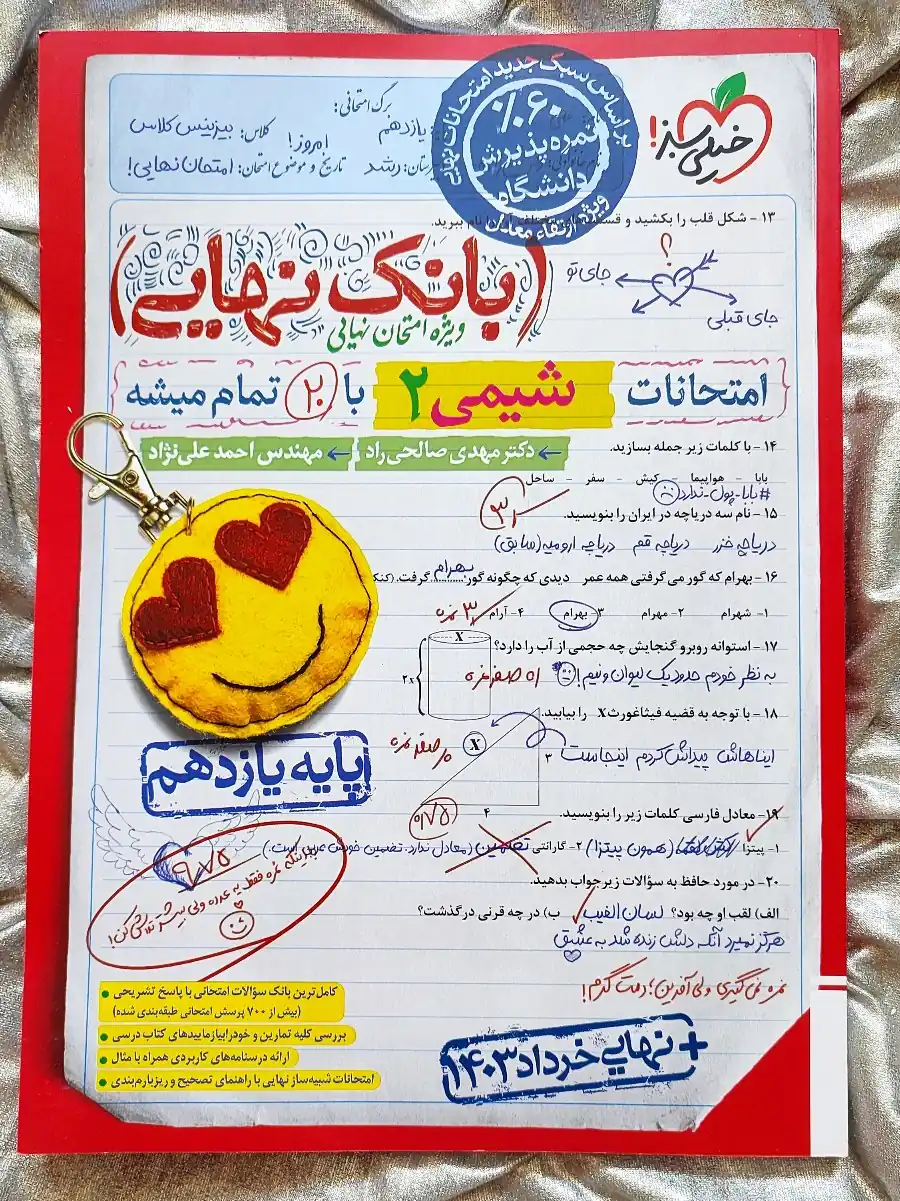 خیلی سبز!
بر اساس سبک جدید امتحانات نهایی
٪۶۰
نمره پذیرش
دانشگاه
ویژه ارتقاء معدل
برگ امتحانی:
یازدهم
کلاس: بیزینس کلاس
رشد
تاریخ و موضوع امتحان: امروز! امتحان نهایی!
۱۳ - شکل قلب را بکشید و نام ببرید.
؟
جای تو
جای قبلی
(بانک نهایی)
ویژه امتحان نهایی
امتحانات شیمی ۲ با ۲۰ تمام میشه
← دکتر مهدی صالحی‌راد ← مهندس احمد علی‌نژاد
۱۴ - با کلمات زیر جمله بسازید.
بابا - هواپیما - کیش - سفر - ساحل
#بابا-پول-ندارد
۱۵ - نام سه دریاچه در ایران را بنویسید.
۳
دریاچه خزر دریاچه قم دریاچه ارومیه (سابق)
۱۶ - بهرام که گور می گرفتی همه عمر دیدی که چگونه گور بهرام گرفت.
۱- شهرام ۲- مهرام ۳- بهرام ۴- آرام
۳ نمره
۱۷ - استوانه روبرو گنجایش چه حجمی از آب را دارد؟
X
۲x
به نظر خودم حدود یک لیوان و نیم!
صفر نمره
۱۸ - با توجه به قضیه فیثاغورث X را بیابید.
ایناهاش پیداش کردم اینجاست
X
۳
۴
صفر نمره
۰/۷۵
پایه یازدهم
۱۹- معادل فارسی کلمات زیر را بنویسید.
۱- پیتزا (همون پیتزا) ۲- گارانتی تضمین (معادل ندارد. تضمین خودش عربی است.)
۲۰- در مورد حافظ به سؤالات زیر جواب بدهید.
الف) لقب او چه بود؟ لسان الغیب ب) در چه قرنی درگذشت؟
هرگز نمیرد آنکه دلش زنده شد به عشق
نمره نمی‌گیری ولی آفرین، دمت گرم!
۹/۷۵
با اینکه نمره فقط یه عدده ولی بیشتر تلاش کن!
کامل‌ترین بانک سؤالات امتحانی با پاسخ تشریحی
(بیش از ۷۰۰ پرسش امتحانی طبقه‌بندی شده)
بررسی کلیه تمارین و خودراببیازماییدهای کتاب درسی
ارائه درسنامه‌های کاربردی همراه با مثال
امتحانات شبیه‌ساز نهایی با راهنمای تصحیح و ریزبارم‌بندی
+ نهایی خرداد ۱۴۰۳